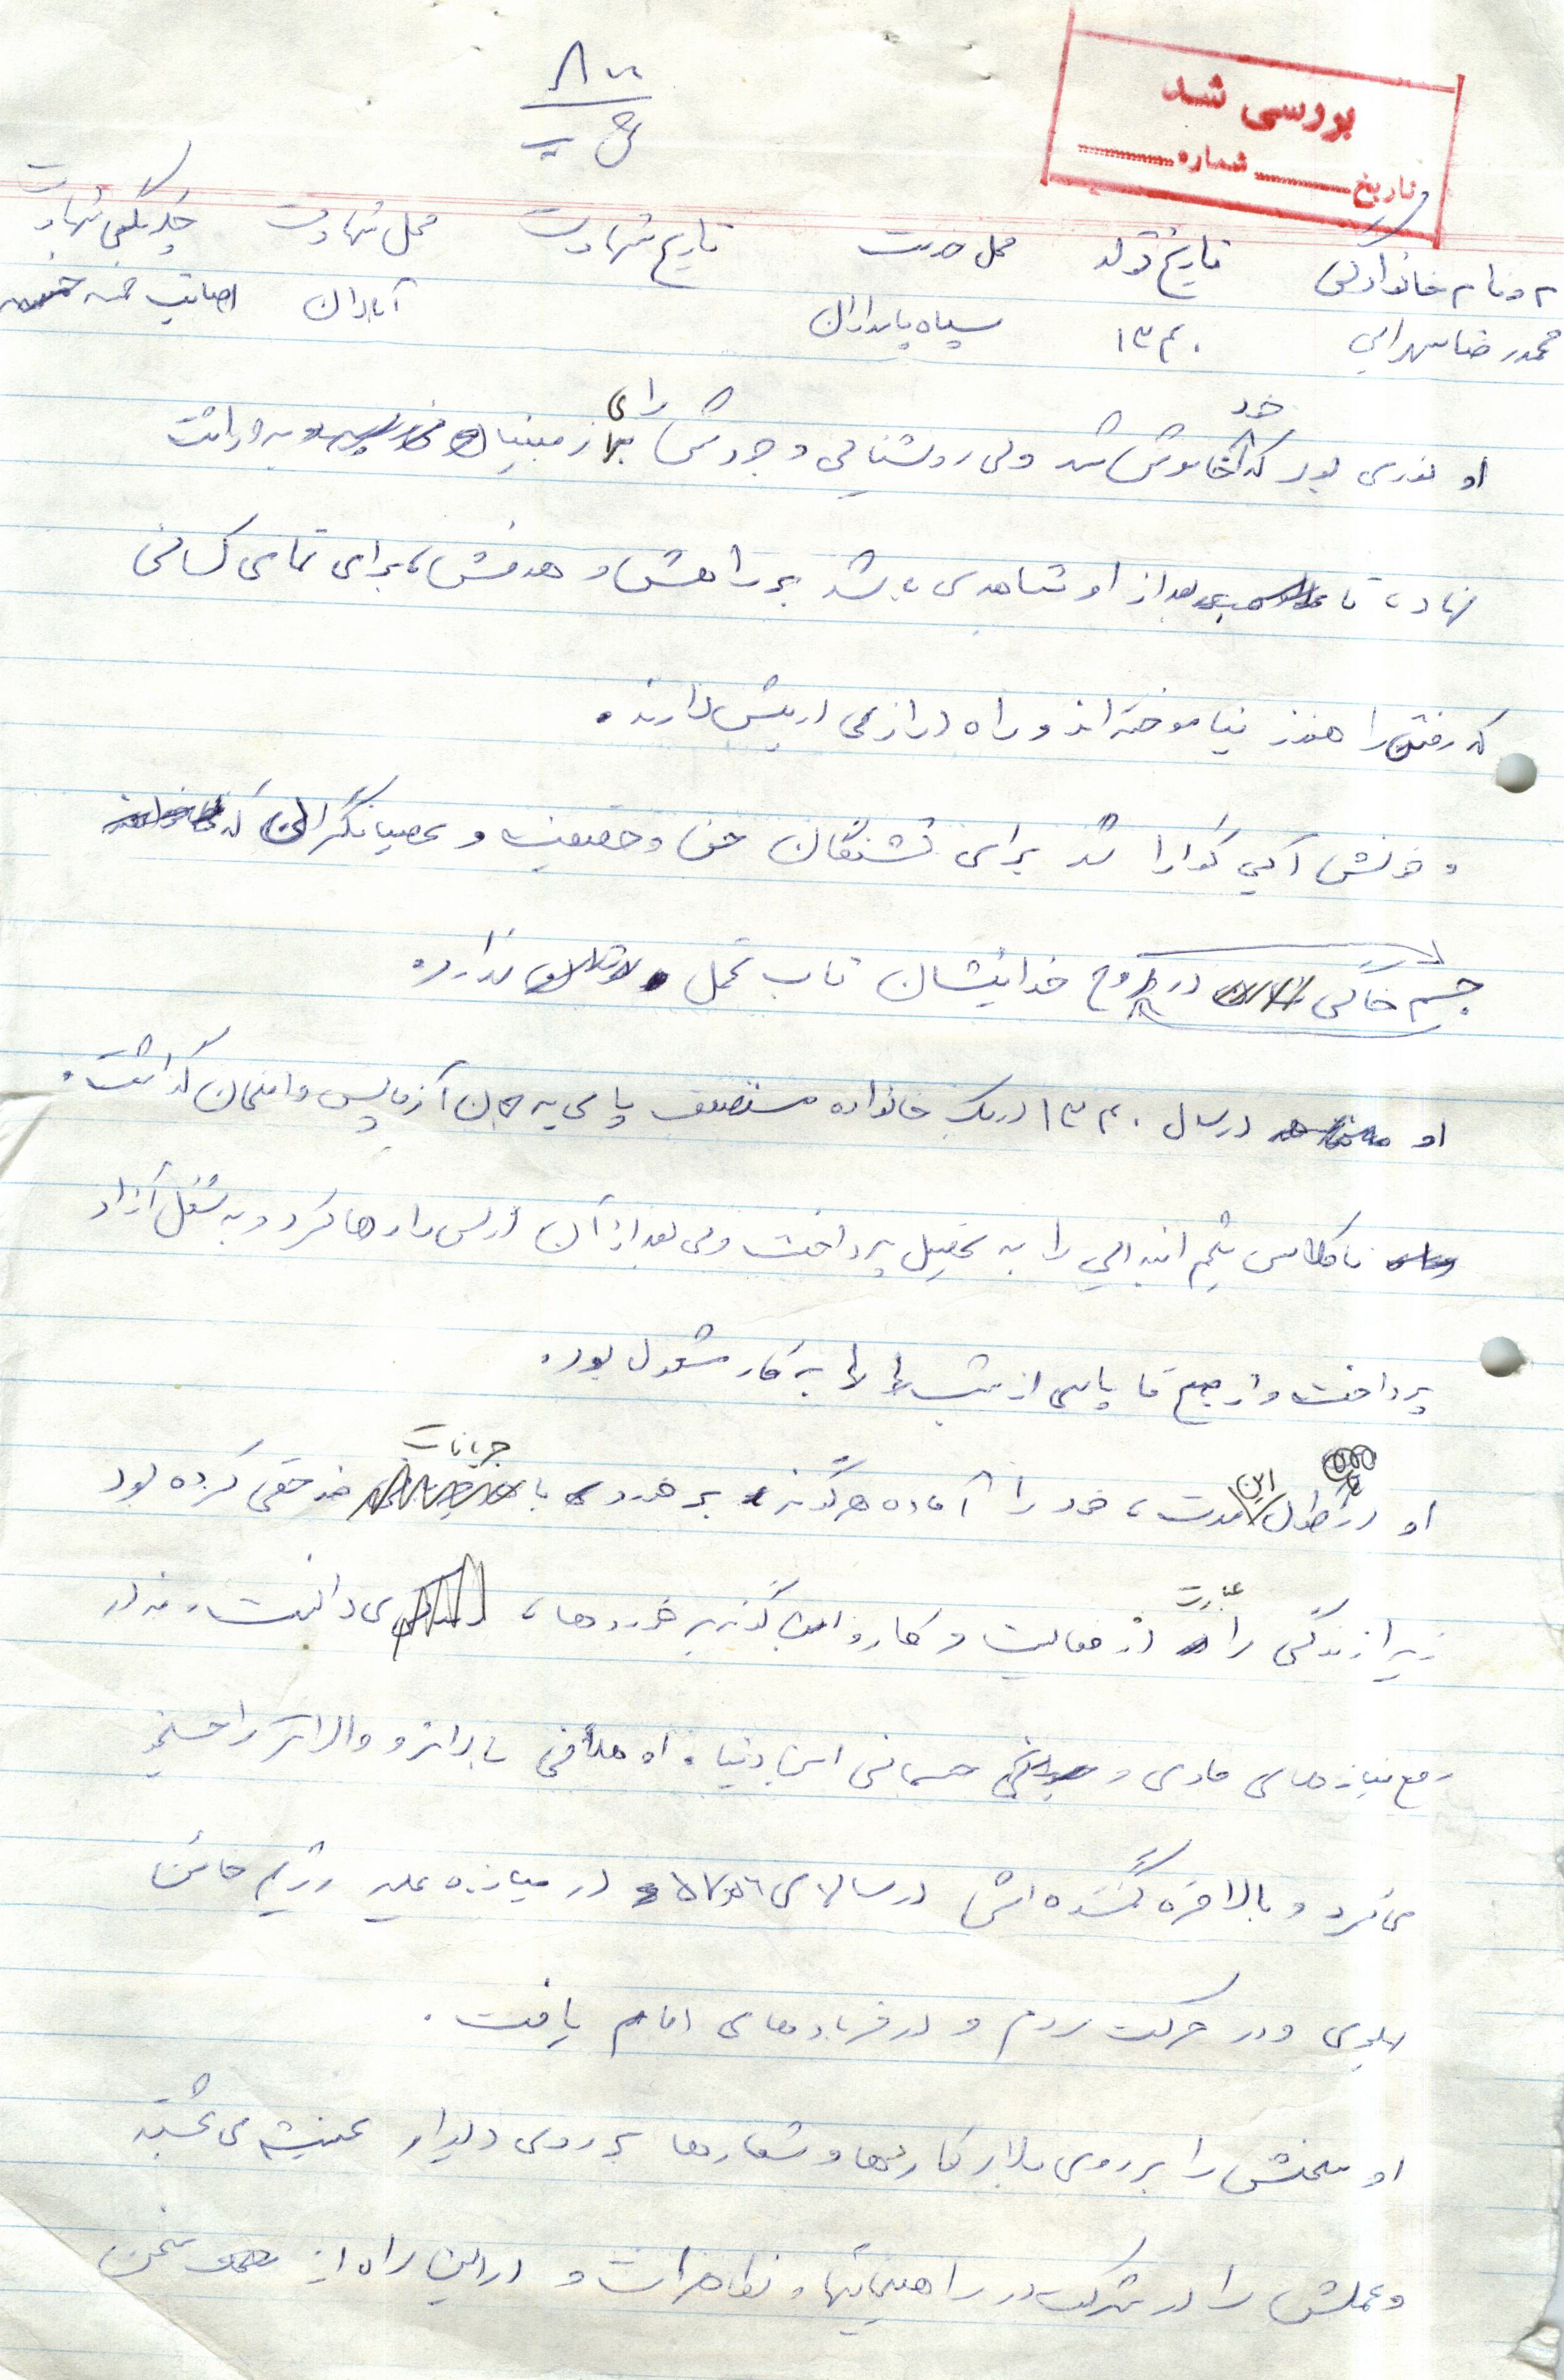 ۸۰۰
ع پ
بررسی شد
تاریخ شماره
م و نام خانوادگی تاریخ تولد محل خدمت تاریخ شهادت محل شهادت چگونگی شهادت
محمدرضا سهرابی ۱۳۴۰ سپاه پاسداران آبادان اصابت خمسه خمسه
او نوری بود که خود خاموش شد ولی روشنایی وجودش را برای زمینیان به وراثت
نهاد، تا بعد از او شاهدی باشد بر راهش و هدفش، برای تمامی کسانی
که رفتن را هنوز نیاموخته اند و راه درازی در پیش دارند.
و خونش آبی گوارا شد برای تشنگان حق و حقیقت و عصیانگران که
جسم خاکی در روح خدائیشان تاب تحمل ندارد.
او در سال ۱۳۴۰ در یک خانواده مستضعف پای به جهان آزمایش و امتحان گذاشت.
تا کلاس پنجم ابتدایی را به تحصیل پرداخت ولی بعد از آن درس را رها کرد و به شغل آزاد
پرداخت و از صبح تا پاسی از شب را به کار مشغول بود.
او در طول این مدت، خود را آماده هرگونه برخوردی با جریانات ضد حقی کرده بود
زیرا زندگی را عبارت از فعالیت و کار و اینگونه برخوردها، می دانست، نه در
رفع نیازهای مادی و جسمانی این دنیا. او هدفی بالاتر و والاتر را جستجو
می کرد و بالاخره گمشده اش در سالهای ۵۶ و ۵۷ در مبارزه علیه رژیم خائن
پهلوی و در حرکت مردم و در فریادهای امام یافت.
او سخنش را بر روی پلاکاردها و شعارها بر روی دیوار عینیت می بخشید
و عملش را در شرکت در راهپیمائیها و تظاهرات و در این راه از سخن